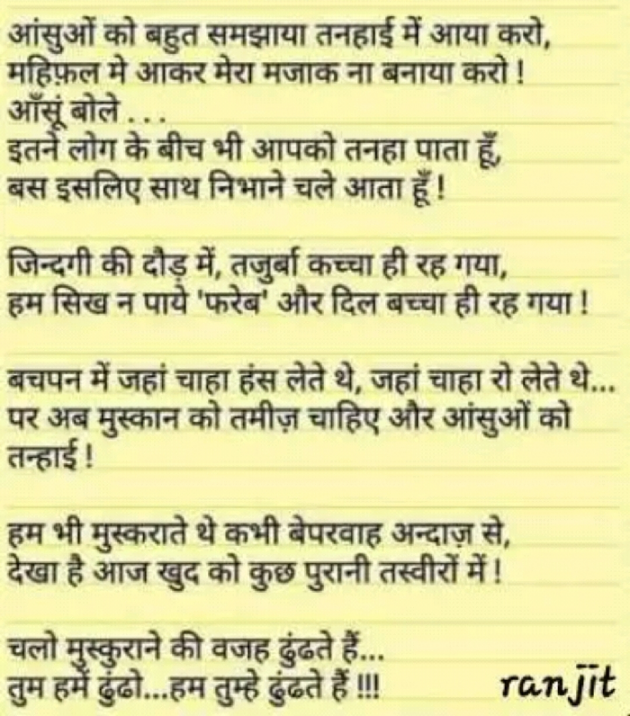 आंसुओं को बहुत समझाया तनहाई में आया करो,
महिफ़ल मे आकर मेरा मजाक ना बनाया करो !
आँसूं बोले . . .
इतने लोग के बीच भी आपको तनहा पाता हूँ,
बस इसलिए साथ निभाने चले आता हूँ !
जिन्दगी की दौड़ में, तजुर्बा कच्चा ही रह गया,
हम सिख न पाये 'फरेब' और दिल बच्चा ही रह गया !
बचपन में जहां चाहा हंस लेते थे, जहां चाहा रो लेते थे...
पर अब मुस्कान को तमीज़ चाहिए और आंसुओं को
तन्हाई !
हम भी मुस्कराते थे कभी बेपरवाह अन्दाज़ से,
देखा है आज खुद को कुछ पुरानी तस्वीरों में !
चलो मुस्कुराने की वजह ढुंढते हैं...
तुम हमें ढुंढो...हम तुम्हे ढुंढते हैं !!!
ranjit